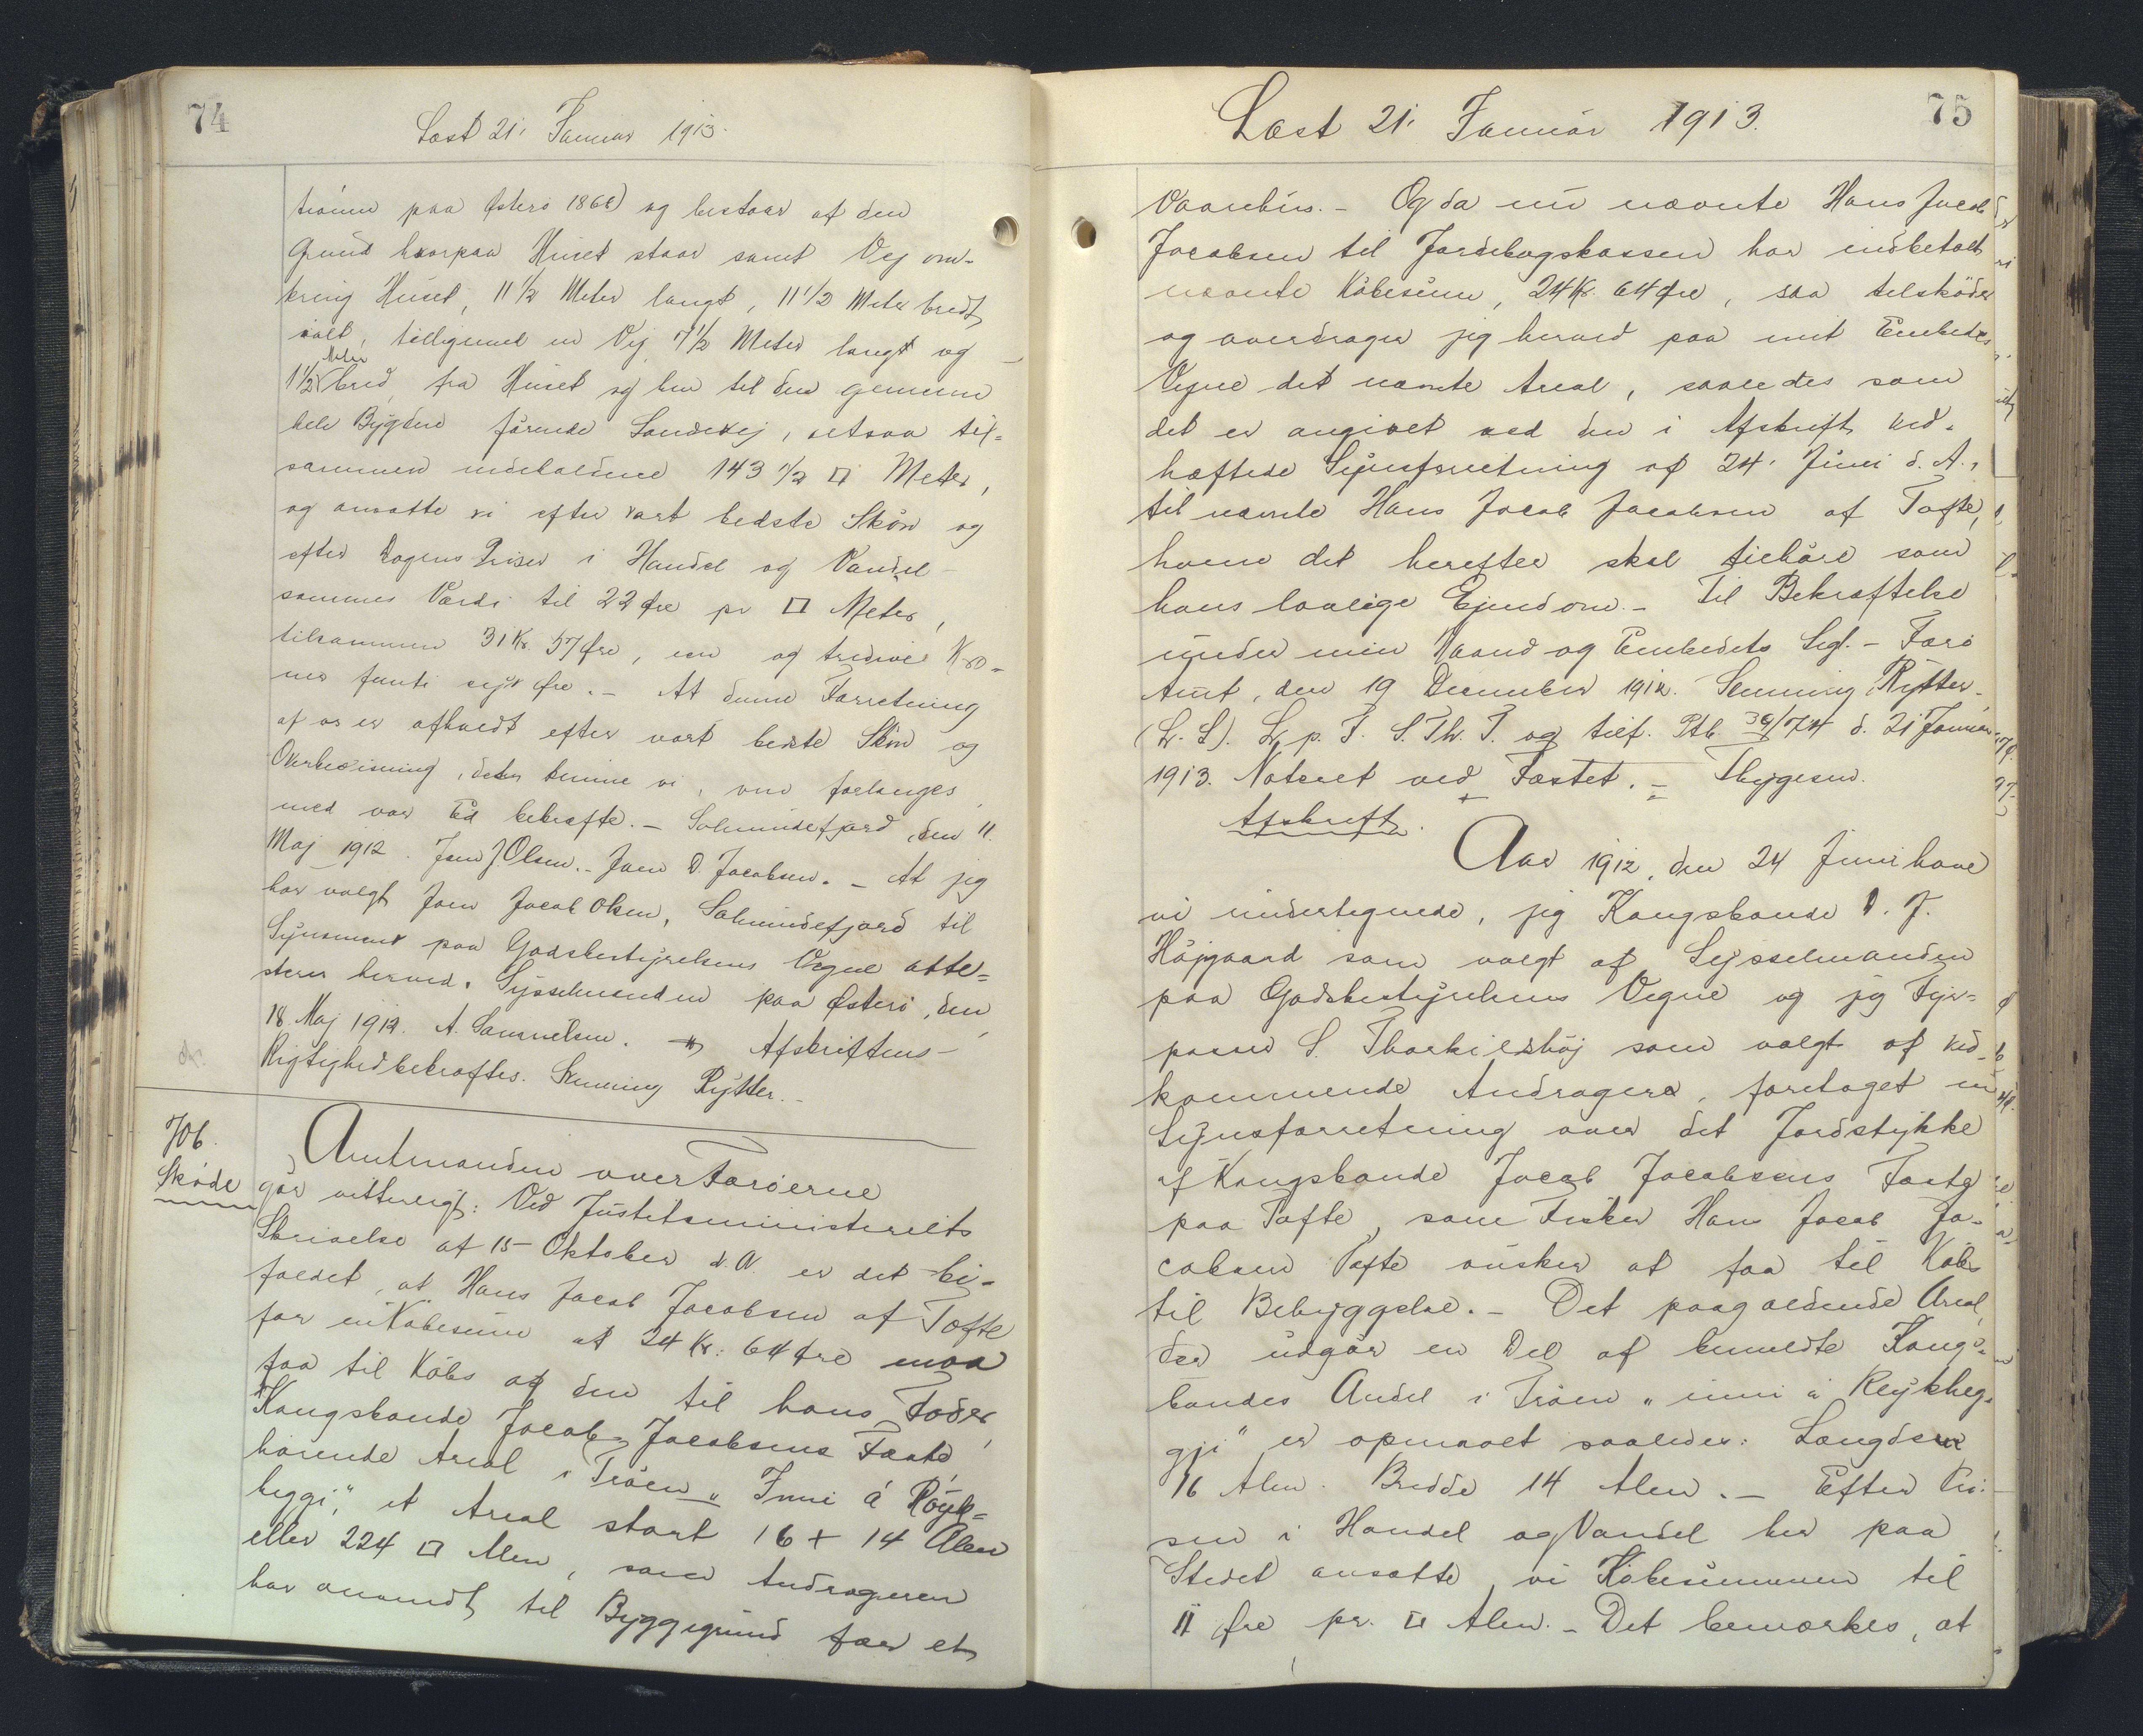 74
Læst 21' Januar 1913.
trøerne paa Østerø 1866) og bestaar af den
Grund hvorpaa Huset staar samt Vej om-
kring Huset, 11 1/2 Meter langt, 11 1/2 Meter bredt
ialt, tilligemed en Vej 7 1/2 Meter langt og -
1 1/2 Meter bred, fra Huset og hen til den gennem
hele Bygden førende Landevej, altsaa til-
sammen indeholdende 143 1/2 □ Meter,
og ansatte vi efter vort bedste Skøn og
efter Dagens Priser i Handel og Vandel -
sammes Værdi til 22 Øre pr □ Meter,
tilsammen 31 Kr. 57 Øre, en og tredive Kro-
ner femti syv Øre. - At denne Forretning
af os er afholdt efter vort bedste Skøn og
Overbevisning, dette kunne vi, om forlanges,
med vor Ed bekræfte. - Solmundefjord, den 11.
Maj 1912. Joen J. Olsen. - Joen D. Jacobsen. - At jeg
har valgt Joen Jacob Olsen, Solmundefjord til
Synsmand paa Godsbestyrelsens Vegne atte-
steres herved. Sysselmanden paa Østerø, den
18. Maj 1912. A. Samuelsen. Afskriftens -
Rigtighed bekræftes. Flemming Rytter. -
706.
Skøde
Amtmanden over Færøerne
gør vitterligt: Ved Justitsministeriets
Skrivelse af 15 Oktober d. A. er det bi-
faldet, at Hans Jacob Jacobsen af Tofte
for en Købesum af 24 Kr. 64 Øre maa
faa til Købs af den til hans Fader,
Kongsbonde Jacob Jacobsens Fæste
hørende Areal i Trøen "Inni á Røyk-
heggi", et Areal stort 16 + 14 Alen
eller 224 □ Alen, som Andrageren
har anvendt til Byggegrund for et
75
Læst 21' Januar 1913.
Vaanhus. - Og da nu nævnte Hans Jacob
Jacobsen til Jordebogskassen har indbetalt
nævnte Købesum, 24 Kr. 64 Øre, saa tilskøder
og overdrager jeg herved paa mit Embedes
Vegne det nævnte Areal, saaledes som
det er angivet ved den i Afskrift ved-
hæftede Synsforretning af 24' Juni d. A.,
til nævnte Hans Jacob Jacobsen af Tofte,
hvem det herefter skal tilhøre som
hans lovlige Ejendom. - Til Bekræftelse
under min Haand og Embedets Segl. - Færø
Amt, den 19 December 1912. Flemming Rytter.
(L. S). L. p. F. S. Th. T. og tilf. Ptb. 39/74 d. 21 Januar
1913. Noteret ved Fæstet. - Thygesen.
Afskrift.
Aar 1912, den 24 Juni have
vi undertegnede, jeg Kongsbonde D. J.
Højgaard som valgt af Sysselmanden
paa Godsbestyrelsens Vegne og jeg Fyr-
passer S. Thorkilshøj som valgt af ved-
kommende Andragere, foretaget en
Synsforretning over det Jordstykke
af Kongsbonde Jacob Jacobsens Fæste
paa Tofte, som Fisker Hans Jacob Ja-
cobsen Tofte ønsker at faa til Købs
til Bebyggelse. - Det paagældende Areal,
der udgør en Del af bemeldte Kongs-
bondes Andel i Trøen "inni á Reykheg-
gji" er opmaalt saaledes: Længden
16 Alen. Bredde 14 Alen. - Efter Pri-
sen i Handel og Vandel her paa
Stedet ansatte vi Købesummen til
11 Øre pr. □ Alen. - Det bemærkes, at